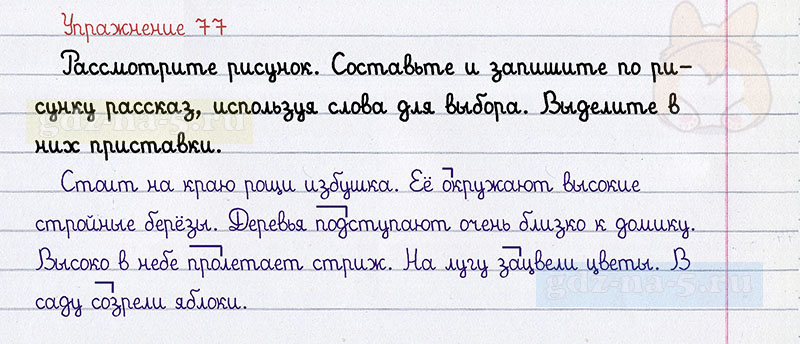 Упражнение 77
Рассмотрите рисунок. Составьте и запишите по ри-
сунку рассказ, используя слова для выбора. Выделите в
них приставки.
Стоит на краю рощи избушка. Её окружают высокие
стройные берёзы. Деревья подступают очень близко к домику.
Высоко в небе пролетает стриж. На лугу зацвели цветы. В
саду созрели яблоки.
gdz-na-5.ru
gdz-na-5.ru